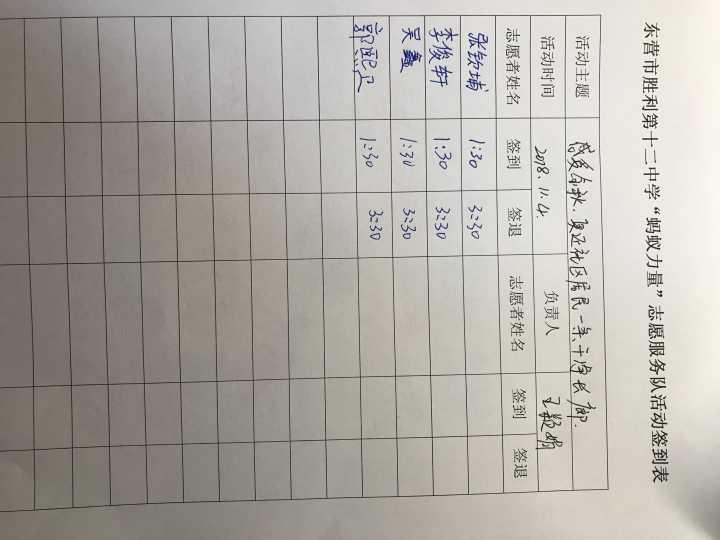 东营市胜利第十二中学“蚂蚁力量”志愿服务队活动签到表
活动主题 感受金秋,还社区居民一条干净长廊.
活动时间 2018.11.4. 负责人 王
志愿者姓名 签到 签退 志愿者姓名 签到 签退
张 埔 1:30 3:30
李俊轩 1:30 3:30
吴鑫 1:30 3:30
郭熙 1:30 3:30